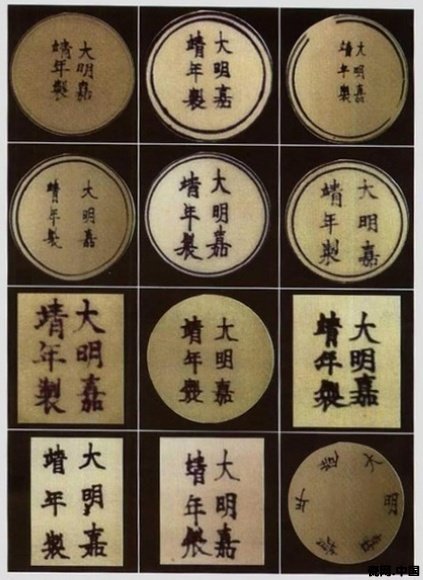 大明嘉
靖年製
大明嘉
靖年製
大明嘉
靖年製
大明嘉
靖年製
大明嘉
靖年製
大明嘉
靖年製
大明嘉
靖年製
大明嘉
靖年製
大明嘉
靖年製
大明嘉
靖年製
大明嘉
靖年製
大明
瓷网.中国